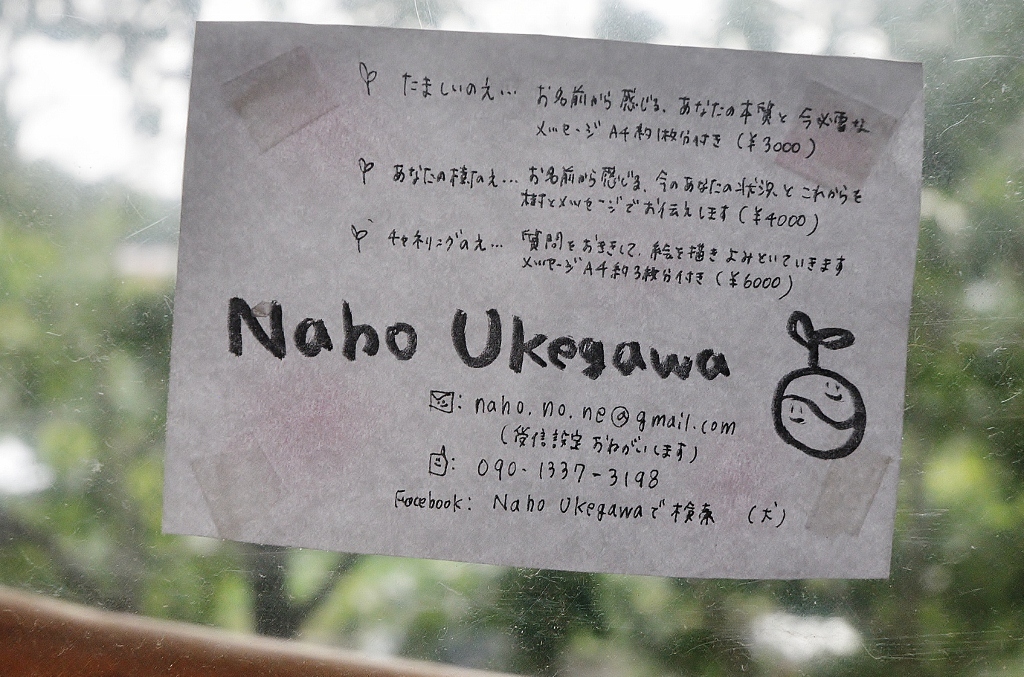 たましいのえ… お名前から感じる、あなたの本質と今必要な
メッセージA4約1枚分付き(¥3000)
あなたの樹のえ… お名前から感じる、今のあなたの状況とこれからを
樹とメッセージでお伝えします(¥4000)
チャネリングのえ… 質問をおききして、絵を描きよみといていきます
メッセージA4約3枚分付き(¥6000)
Naho Ukegawa
: naho.no.ne@gmail.com
(受信設定おねがいします)
: 090-1337-3198
Facebook: Naho Ukegawaで検索 (犬)